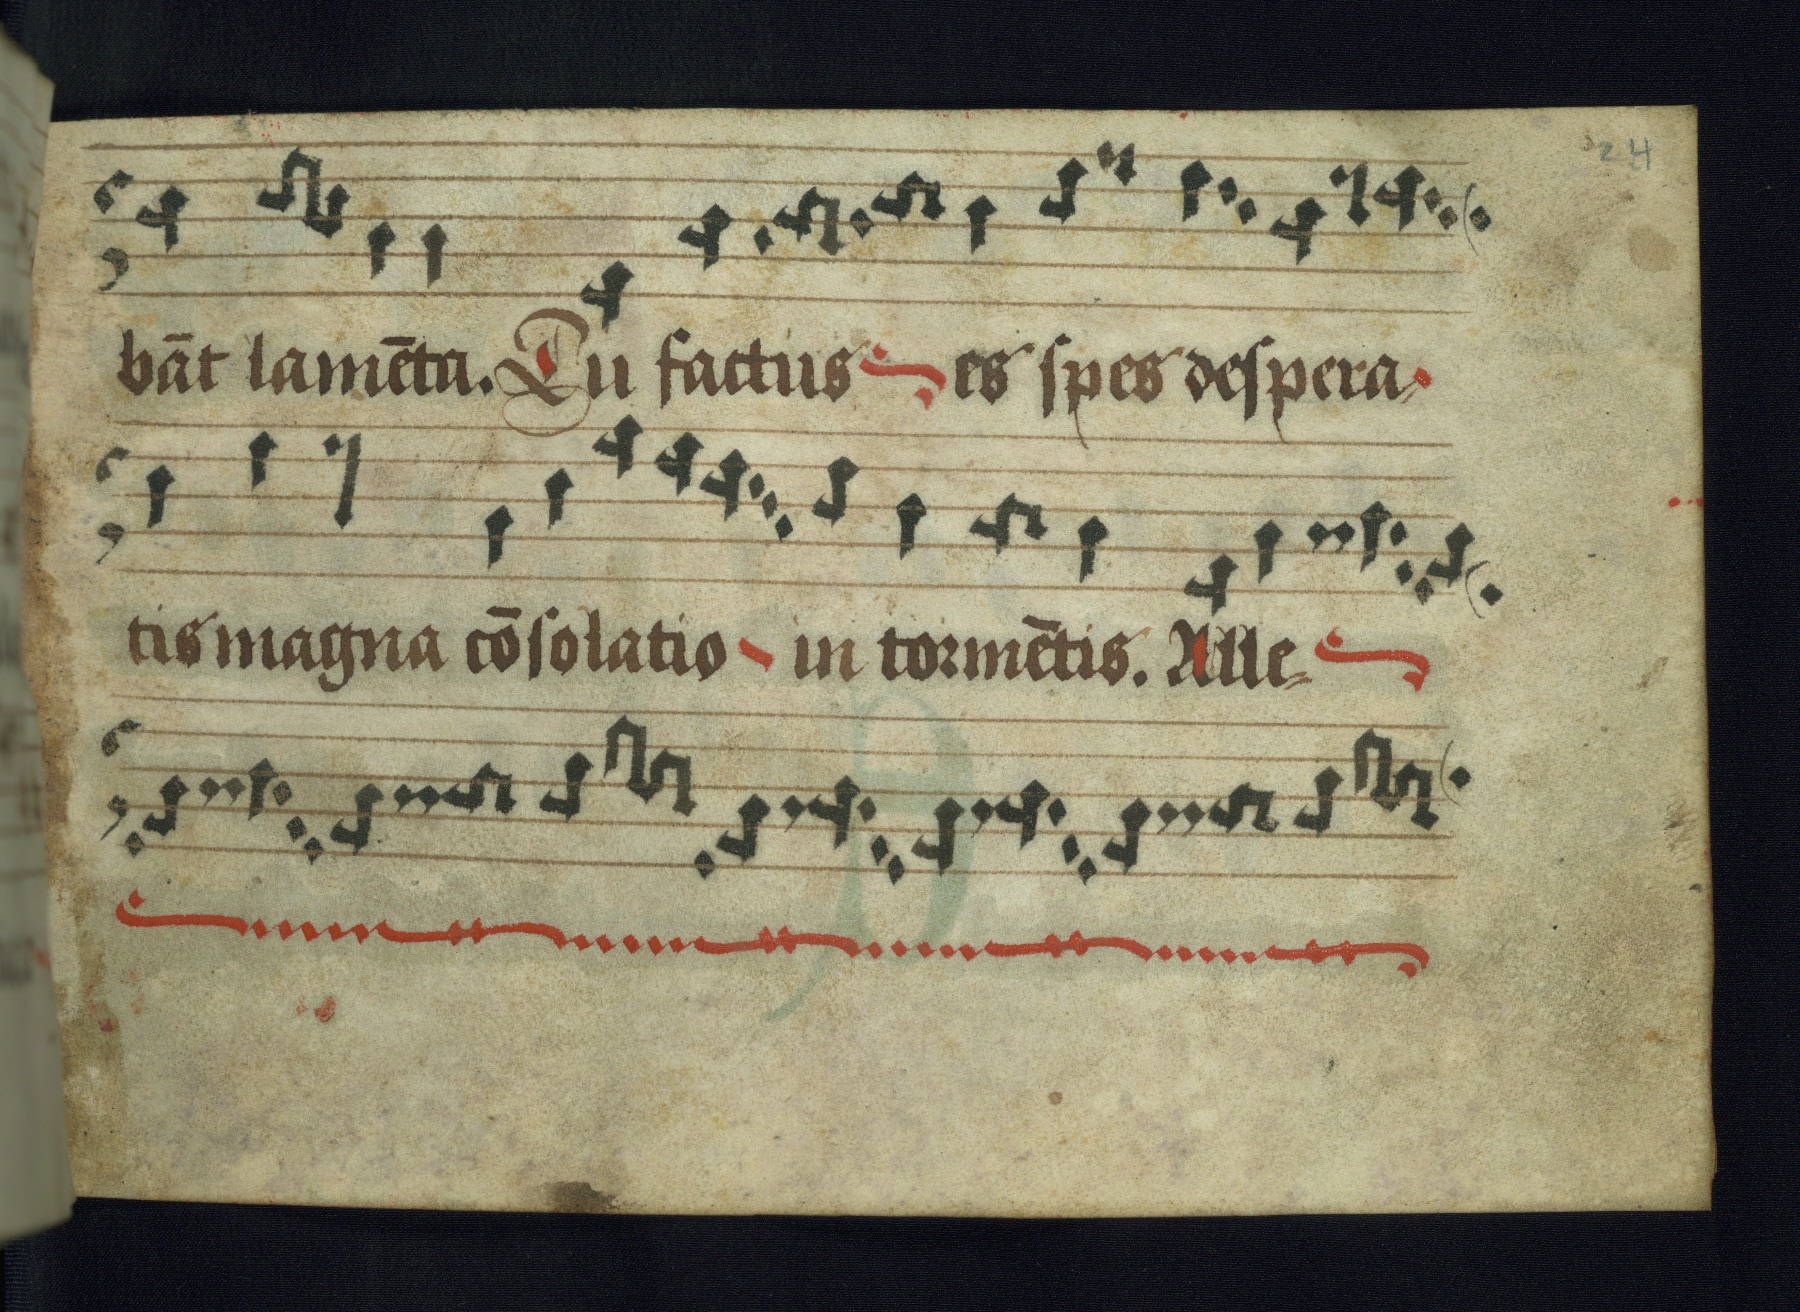 24
bāt lamēta. Tu factus es spes despera
tis magna cōsolatio in tormētis. Alle-